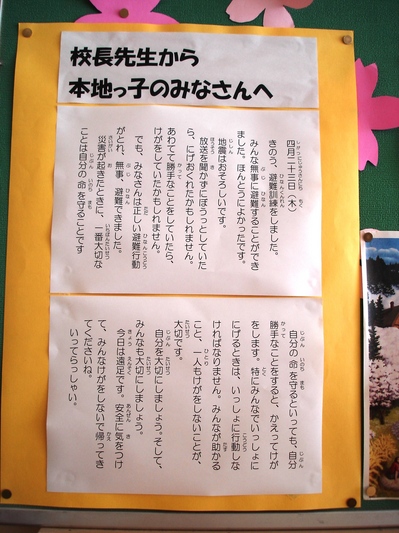 校長先生から
本地っ子のみなさんへ
四月二十三日（木）
きのう、避難訓練をしました。
みんな無事に避難することができ
ました。ほんとうによかったです。
地震はおそろしいです。
放送を聞かずにぼうっとしていた
ら、にげおくれたかもしれません。
あわてて勝手なことをしていたら、
けがをしていたかもしれません。
でも、みなさんは正しい避難行動
がとれ、無事、避難できました。
災害が起きたときに、一番大切な
ことは自分の命を守ることです
自分の命を守るといっても、自分
勝手なことをすると、かえってけが
をします。特にみんなでいっしょに
にげるときは、いっしょに行動しな
ければなりません。みんなが助かる
こと、一人もけがをしないことが、
大切です。
自分を大切にしましょう。そして、
みんなも大切にしましょう。
今日は遠足です。安全に気をつけ
て、みんなけがをしないで帰ってき
てくださいね。
いってらっしゃい。